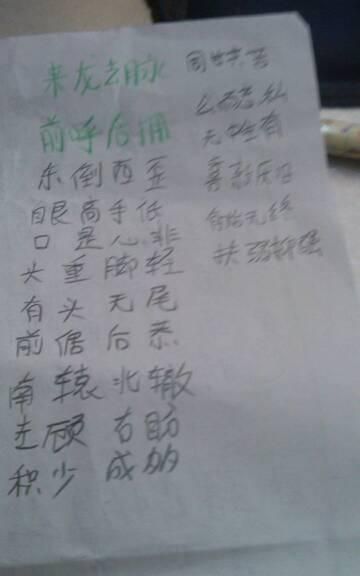 来龙去脉
前呼后拥
东倒西歪
眼高手低
口是心非
头重脚轻
有头无尾
前倨后恭
南辕北辙
左顾右盼
积少成多
无中生有
喜新厌旧
有始无终
扶弱抑强